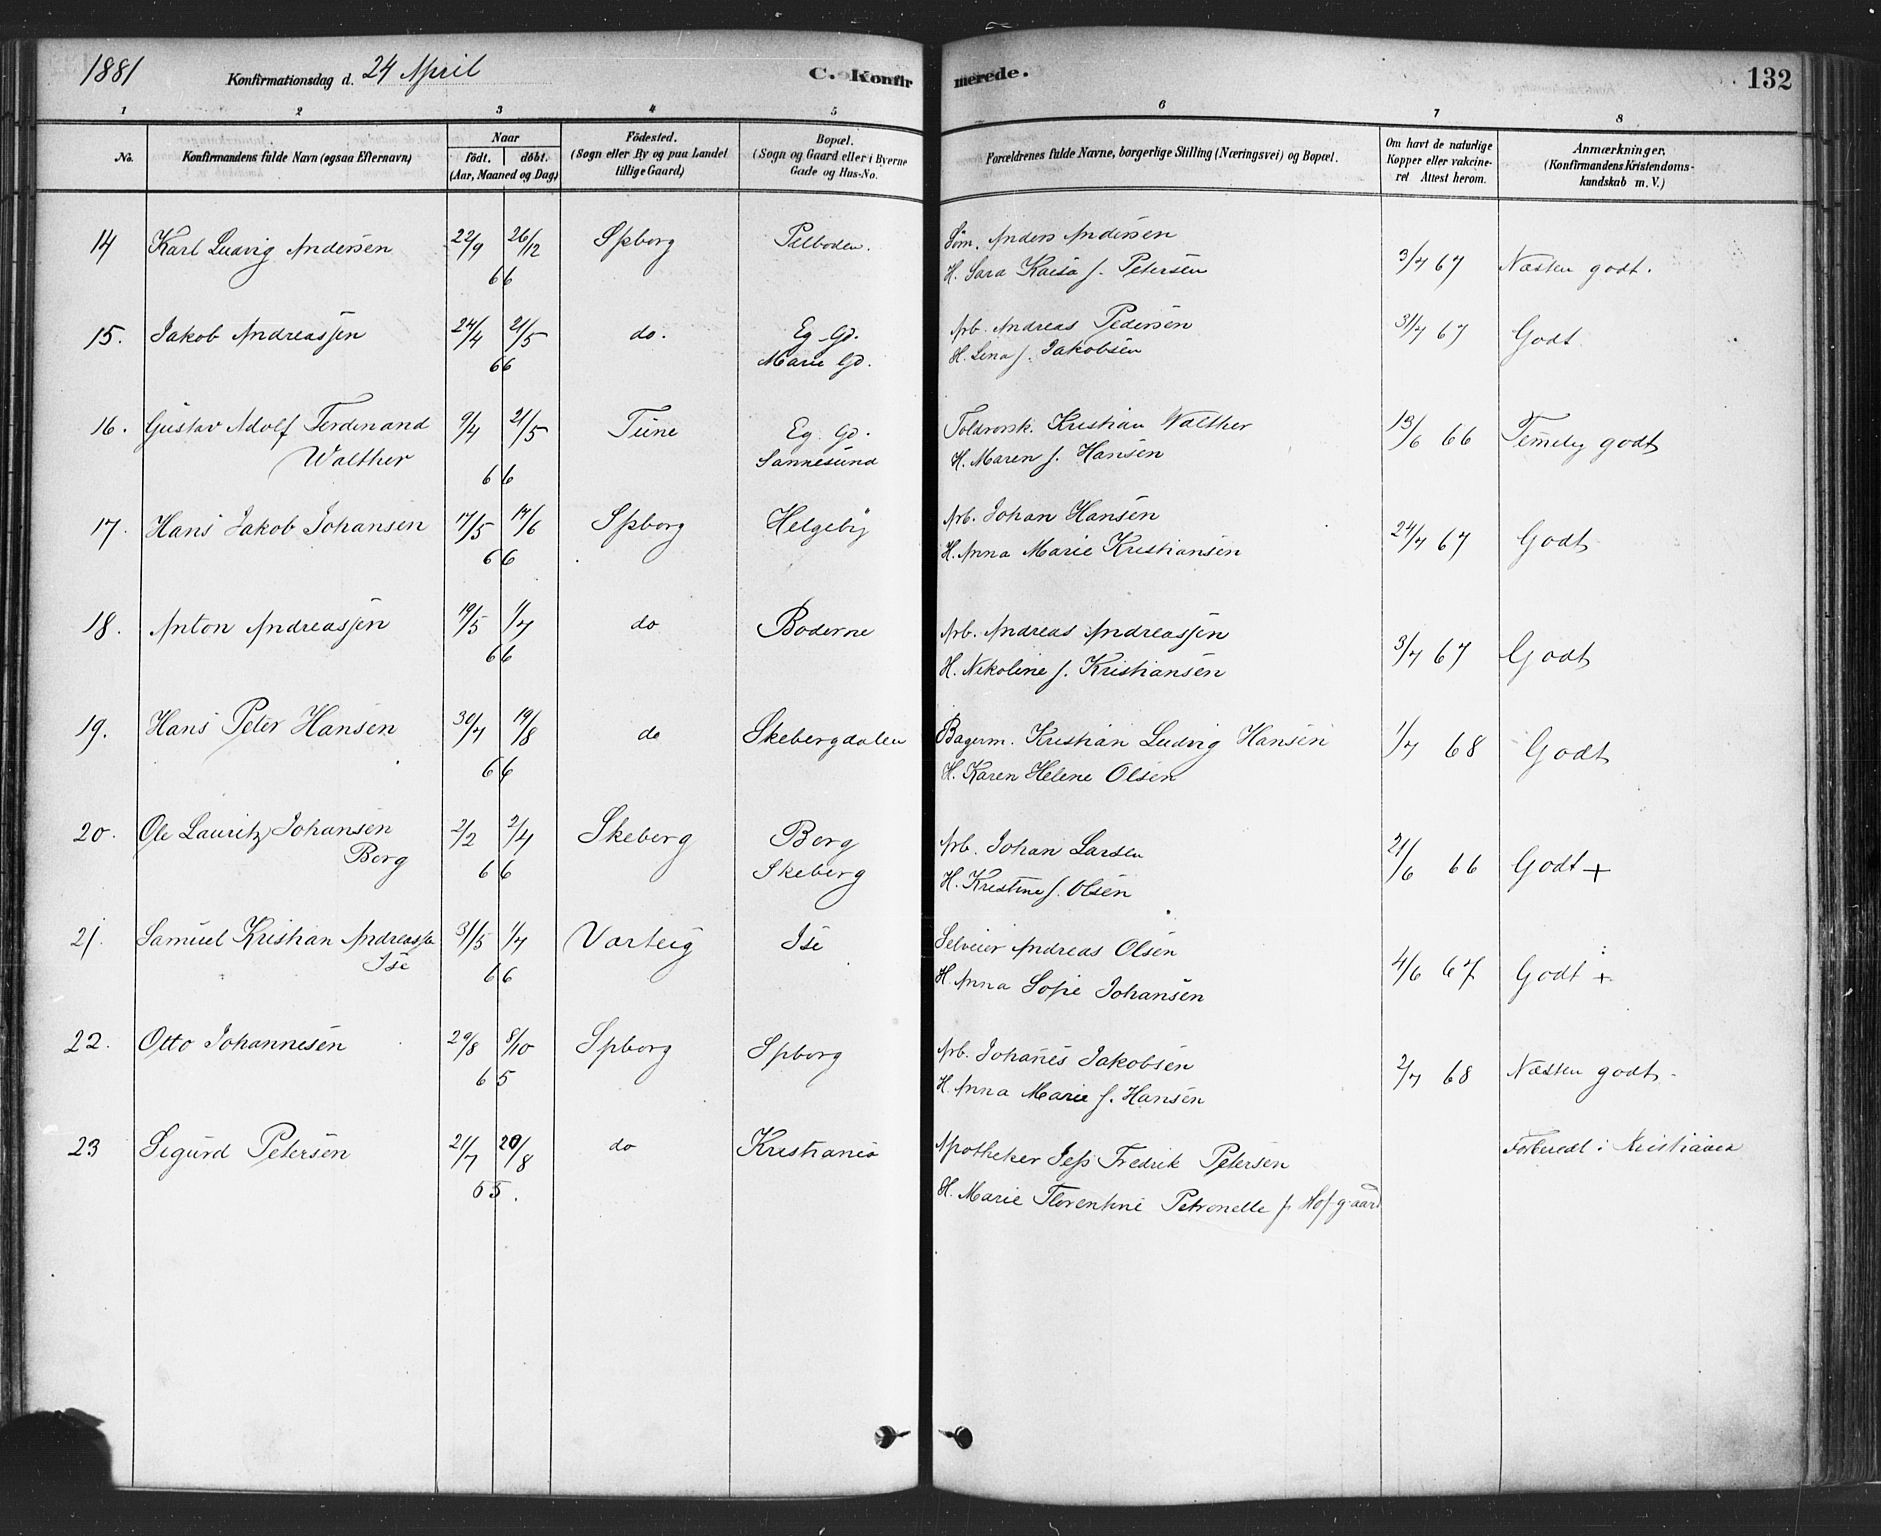 1881 Konfirmationsdag d. 24 April C. Konfirmerede. 132
1 2 3 4 5 6 7 8
No. Konfirmandens fulde Navn (ogsaa Efternavn) Naar født. døbt. (Aar, Maaned og Dag) Fødested. (Sogn eller By og paa Landet tillige Gaard) Bopæl. (Sogn og Gaard eller i Byerne Gade og Hus-No. Forældrenes fulde Navne, borgerlige Stilling (Næringsvei) og Bopæl. Om havt de naturlige Kopper eller vakcineret Attest herom. Anmærkninger. (Konfirmandens Kristendomskundskab m. V.)
14 Karl Ludvig Andersen 22/9 26/12 Spborg Pelboden. Søm. Anders Andersen 3/7 67 Næsten godt.
66 H. Sara Kaisa f. Petersen
15. Jakob Andreassen 24/4 21/5 do. Eg. Gd. Arb. Andreas Pedersen 31/7 67 Godt
66 Marie Gd. H. Lena f. Jakobsen
16. Gustav Adolf Ferdinand 9/4 21/5 Tune Eg. Gd. Toldrorsk. Kristian Walther 13/6 66 Temelig godt
Walther 66 Sannesund H. Maren f. Hansen
17. Hans Jakob Johansen 17/5 17/6 Spborg Helgeby Arb. Johan Hansen 24/7 67 Godt
66 H. Anna Marie Kristiansen
18. Anton Andreassen 19/5 1/7 do Boderne Arb. Andreas Andreassen 3/7 67 Godt
66 H. Nikoline f. Kristiansen
19. Hans Peter Hansen 30/7 19/8 do Skebergdalen Bagerm. Kristian Ludvig Hansen 1/7 68 Godt
66 H. Karen Helene Olsen
20. Ole Lauritz Johansen 2/2 2/4 Skeberg Berg Arb. Johan Larsen 21/6 66 Godt +
Berg 66 Skeberg H. Kristine f. Olsen
21. Samuel Kristian Andreassen 31/5 1/7 Varteig Ise Selveier Andreas Olsen 4/6 67 Godt +
Ise 66 H. Anna Sofie Johansen
22. Otto Johannesen 29/8 8/10 Spborg Spborg Arb. Johanes Jakobsen 2/7 68 Næsten godt
65 H. Anna Marie f. Hansen
23 Sigurd Petersen 21/7 20/8 do Kristiania Apotheker Jess Fredrik Petersen Forberedt i Kristiania
65. H. Marie Florentine Petronelle f. Hofgaard